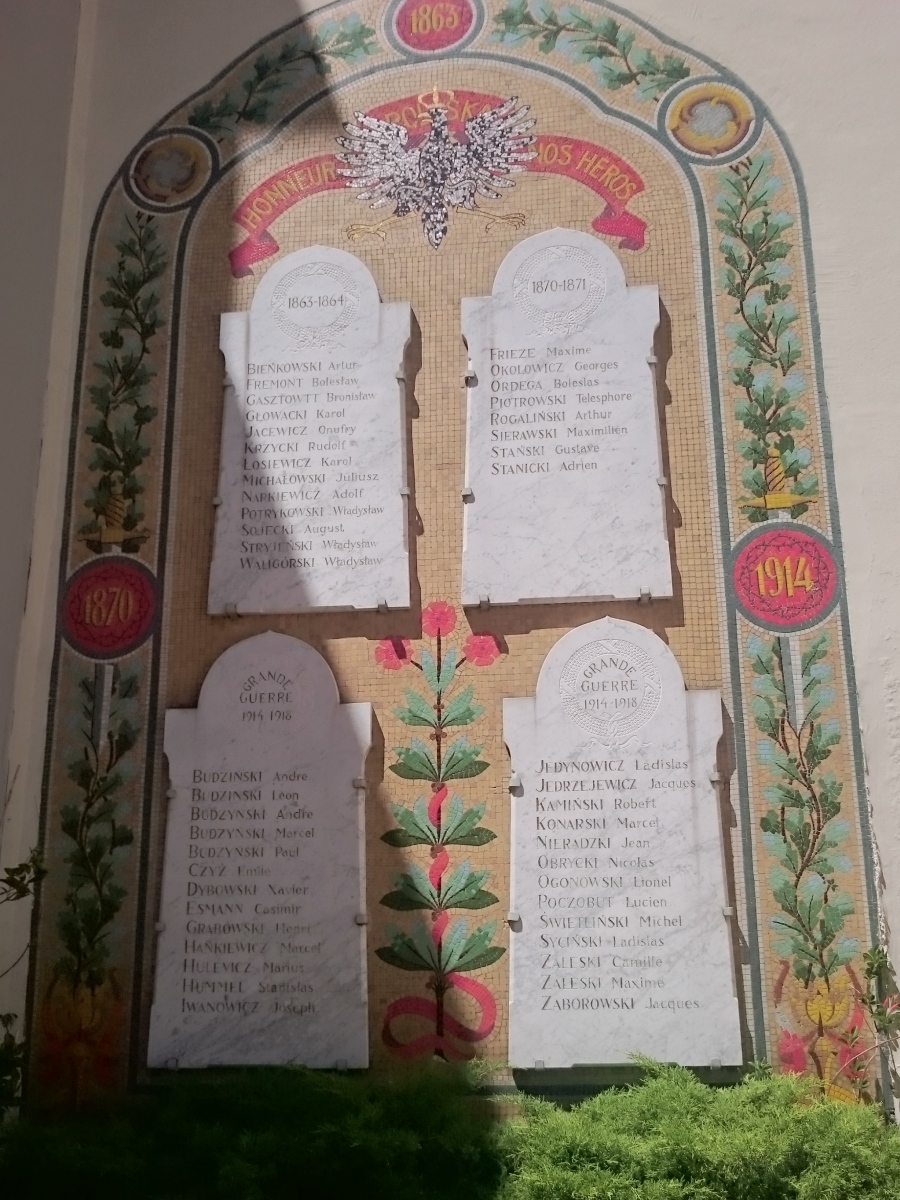 1863
HONNEUR
NOS HEROS
1863-1864
BIEŃKOWSKI Artur
FREMONT Bolesław
GASZTOWTT Bronisław
GŁOWACKI Karol
JACEWICZ Onufry
KRZYCKI Rudolf
ŁOSIEWICZ Karol
MICHAŁOWSKI Juliusz
NARKIEWICZ Adolf
POTRYKOWSKI Władysław
SOJECKI August
STRYJEŃSKI Władysław
WALIGÓRSKI Władysław
1870-1871
FRIEZE Maxime
OKOLOWICZ Georges
ORDEGA Boleslas
PIOTROWSKI Telesphore
ROGALIŃSKI Arthur
SIERAWSKI Maximilien
STAŃSKI Gustave
STANICKI Adrien
1870
1914
GRANDE
GUERRE
1914-1918
BUDZINSKI Andre
BUDZINSKI Leon
BUDZYNSKI Andre
BUDZYNSKI Marcel
BUDZYNSKI Paul
CZYZ Emile
DYBOWSKI Xavier
ESMANN Casimir
GRABOWSKI Henri
HAŃKIEWICZ Marcel
HULEWICZ Marius
HUMMEL Stanislas
IWANOWICZ Joseph
GRANDE
GUERRE
1914-1918
JEDYNOWICZ Ladislas
JEDRZEJEWICZ Jacques
KAMIŃSKI Robert
KONARSKI Marcel
NIERADZKI Jean
OBRYCKI Nicolas
OGONOWSKI Lionel
POCZOBUT Lucien
ŚWIETLIŃSKI Michel
SYCIŃSKI Ladislas
ZALESKI Camille
ZALESKI Maxime
ZABOROWSKI Jacques